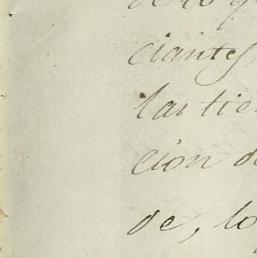 de lo q
ciantes
las tie
cion d
de, lo